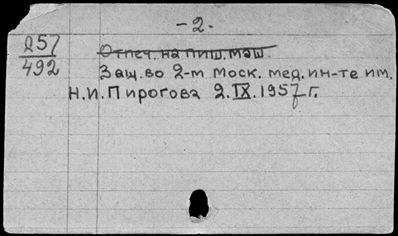 - 2. -
257
492
Отпеч. на пиш. маш.
Защ. во 2-м Моск. мед. ин-те им.
Н.И. Пирогова 2.IX.1957 г.